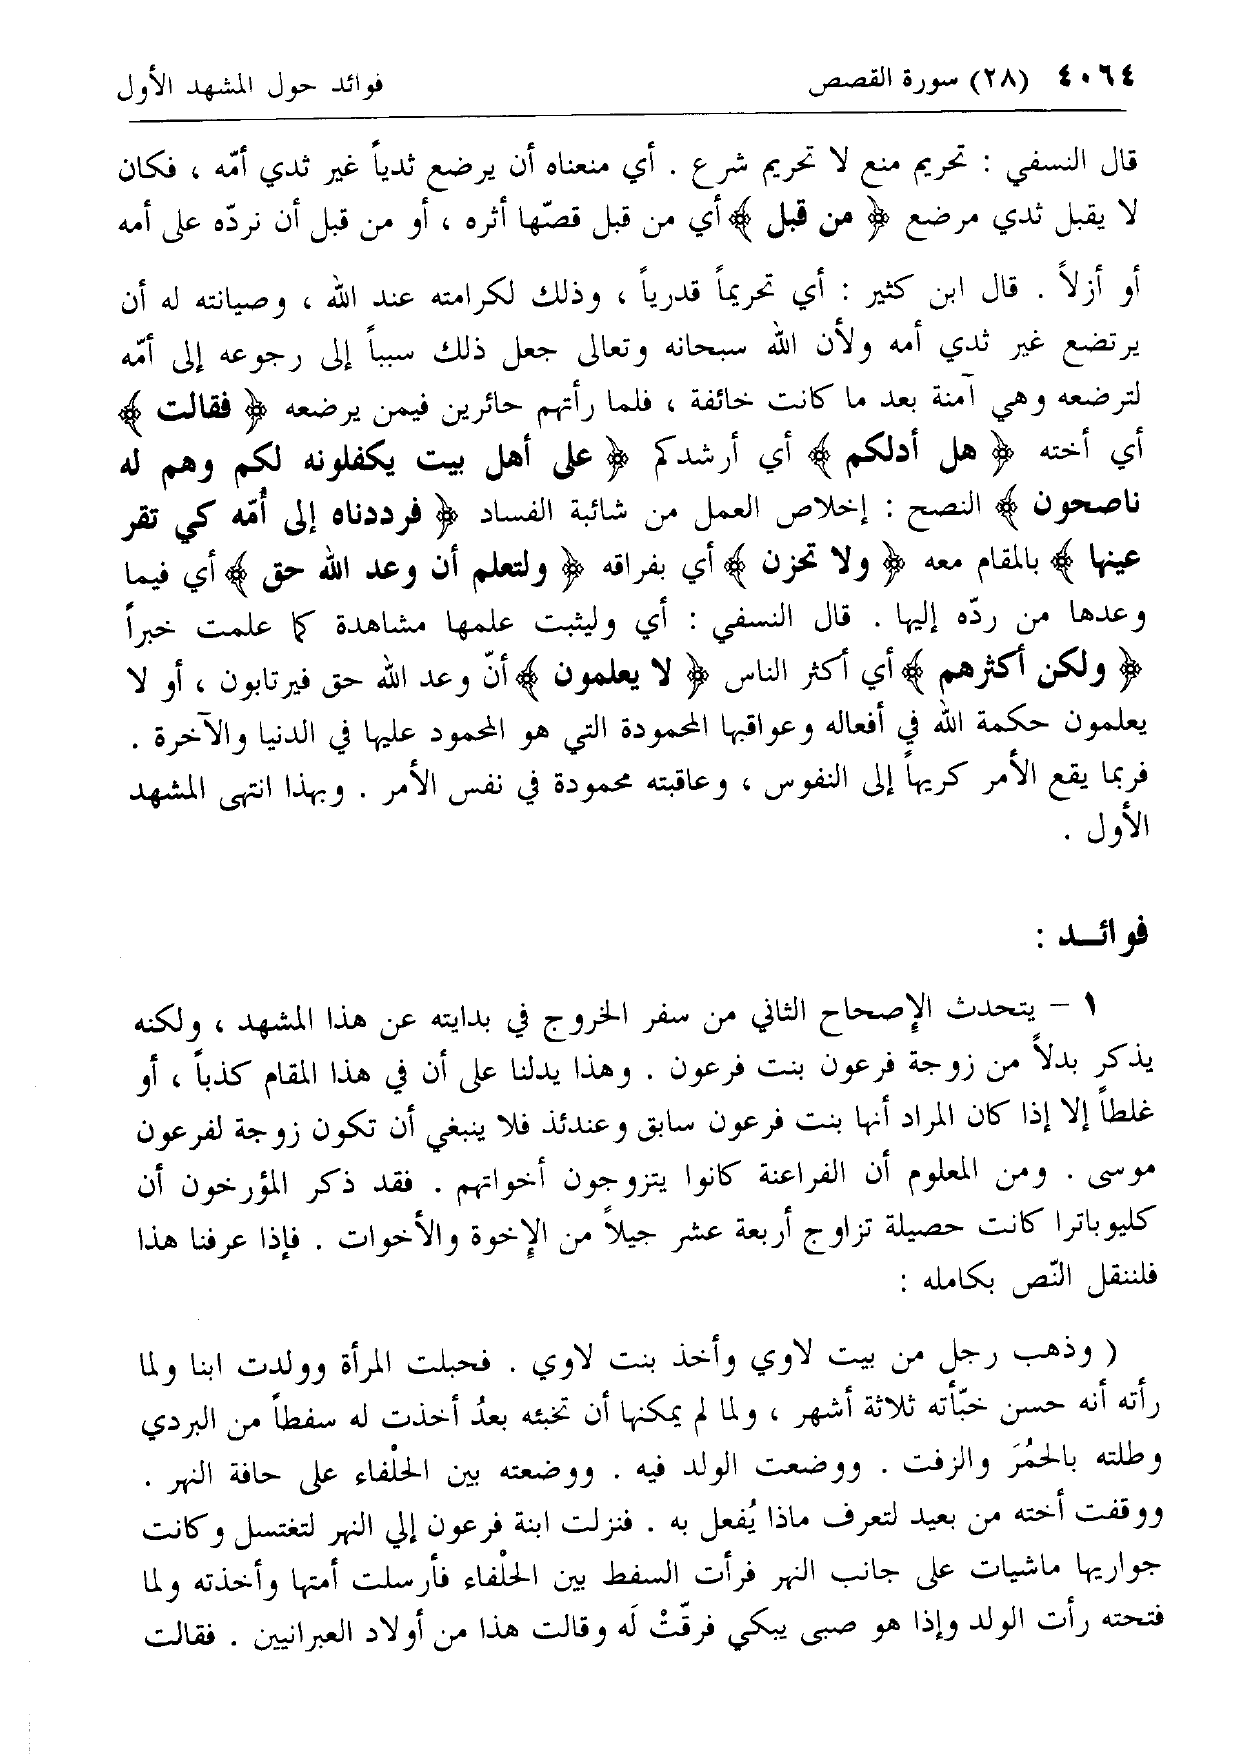 ٤٠٦٤ (٢٨) سورة القصص فوائد حول المشهد الأول
قال النسفي : تحريم منع لا تحريم شرع . أي منعناه أن يرضع ثدياً غير ثدي أمّه ، فكان
لا يقبل ثدي مرضع ﴿ من قبل ﴾ أي من قبل قصّها أثره ، أو من قبل أن نردّه على أمه
أو أزلاً . قال ابن كثير : أي تحريماً قدرياً ، وذلك لكرامته عند الله ، وصيانته له أن
يرتضع غير ثدي أمه ولأن الله سبحانه وتعالى جعل ذلك سبباً إلى رجوعه إلى أمّه
لترضعه وهي آمنة بعد ما كانت خائفة ، فلما رأتهم حائرين فيمن يرضعه ﴿ فقالت ﴾
أي أخته ﴿ هل أدلكم ﴾ أي أرشدكم ﴿ على أهل بيت يكفلونه لكم وهم له
ناصحون ﴾ النصح : إخلاص العمل من شائبة الفساد ﴿ فرددناه إلى أُمّه كي تقر
عينها ﴾ بالمقام معه ﴿ ولا تحزن ﴾ أي بفراقه ﴿ ولتعلم أن وعد الله حق ﴾ أي فيما
وعدها من ردّه إليها . قال النسفي : أي وليثبت علمها مشاهدة كما علمت خبراً
﴿ ولكن أكثرهم ﴾ أي أكثر الناس ﴿ لا يعلمون ﴾ أنّ وعد الله حق فيرتابون ، أو لا
يعلمون حكمة الله في أفعاله وعواقبها المحمودة التي هو المحمود عليها في الدنيا والآخرة .
فربما يقع الأمر كريهاً إلى النفوس ، وعاقبته محمودة في نفس الأمر . وبهذا انتهى المشهد
الأول .
فوائــد :
١ – يتحدث الإصحاح الثاني من سفر الخروج في بدايته عن هذا المشهد ، ولكنه
يذكر بدلاً من زوجة فرعون بنت فرعون . وهذا يدلنا على أن في هذا المقام كذباً ، أو
غلطاً إلا إذا كان المراد أنها بنت فرعون سابق وعندئذ فلا ينبغي أن تكون زوجة لفرعون
موسى . ومن المعلوم أن الفراعنة كانوا يتزوجون أخواتهم . فقد ذكر المؤرخون أن
كليوباترا كانت حصيلة تزاوج أربعة عشر جيلاً من الإخوة والأخوات . فإذا عرفنا هذا
فلننقل النّص بكامله :
( وذهب رجل من بيت لاوي وأخذ بنت لاوي . فحبلت المرأة وولدت ابنا ولما
رأته أنه حسن خبّأته ثلاثة أشهر ، ولما لم يمكنها أن تخبئه بعدُ أخذت له سفطاً من البردي
وطلته بالحُمَرَ والزفت . ووضعت الولد فيه . ووضعته بين الحلْفاء على حافة النهر .
ووقفت أخته من بعيد لتعرف ماذا يُفعل به . فنزلت ابنة فرعون إلي النهر لتغتسل وكانت
جواريها ماشيات على جانب النهر فرأت السفط بين الحلْفاء فأرسلت أمتها وأخذته ولما
فتحته رأت الولد وإذا هو صبى يبكي فرقّتْ لَه وقالت هذا من أولاد العبرانيين . فقالت